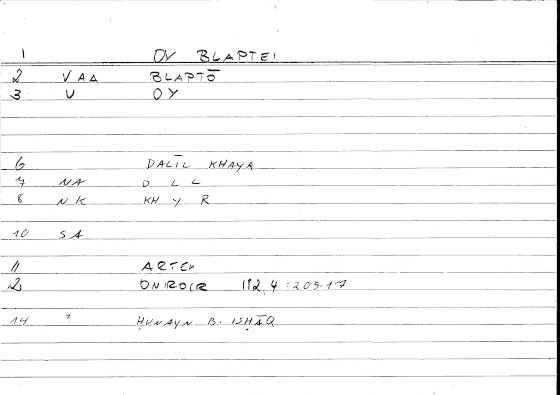 1 OY BLAPTEI
2 VAA BLAPTŌ
3 U OY
6 DALĪL KHAYR
7 NA D L L
8 NK KH Y R
10 SA
11 ARTEM
12 ONIROCR 112,4=205.17
14 ? ḤUNAYN B. ISḤĀQ